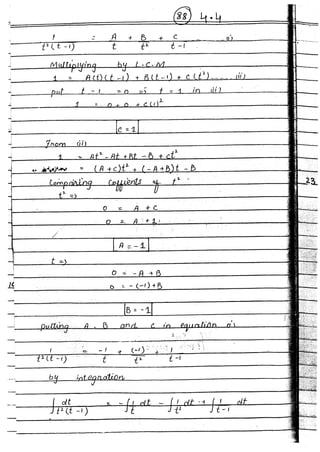 88 4.4
1 = A + B + C i)
t²(t-1) t t² t-1
Multiplying by L.C.M
1 = A(t)(t-1) + B(t-1) + C(t²) ii)
put t-1 = 0 => t = 1 in ii)
1 = 0 + 0 + C(1)²
C = 1
From (ii)
1 = At² - At + Bt - B + Ct²
= (A+C)t² + (-A+B)t - B
Comparing of t²
t² =>
0 = A + C
0 = A + 1
A = -1
t =>
0 = -A + B
0 = -(-1) + B
B = -1
putting A, B and C in equation i)
1 = -1 + (-1) + 1
t²(t-1) t t² t-1
by integration
∫ dt = -∫ 1 dt - ∫ 1 dt + ∫ 1 dt
t²(t-1) t t² t-1
23